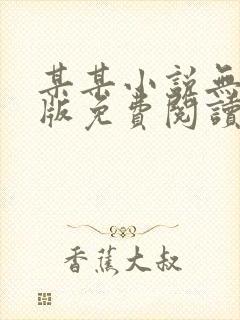 某某小説無
版免費閱讀
香蕉大叔